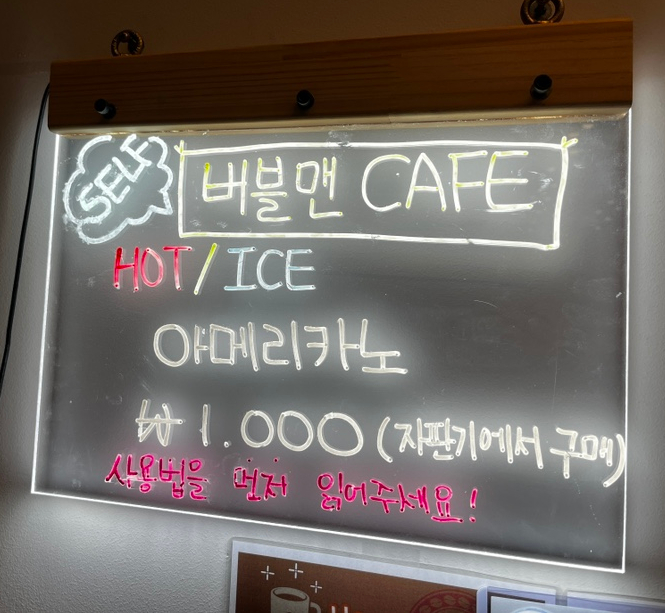 SELF
버블맨 CAFE
HOT/ICE
아메리카노
₩ 1.000 (자판기에서 구매)
사용법을 먼저 읽어주세요!